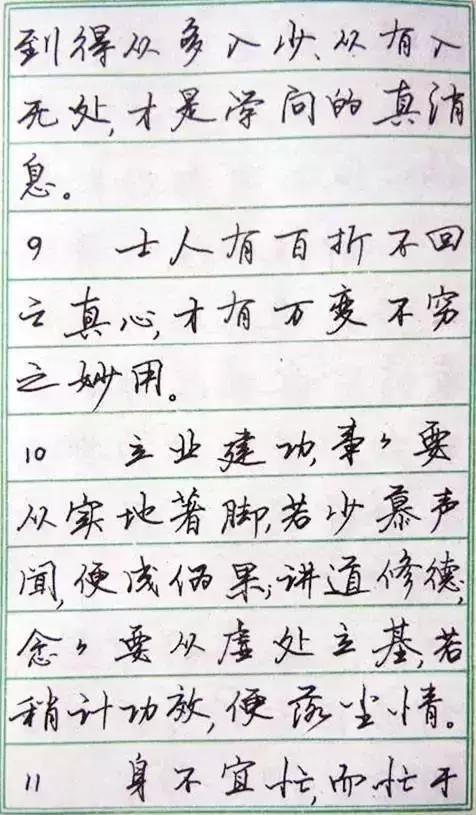 到得从多入少、从有入
死处,才是学问的真消
息。
9 士人有百折不回
之真心,才有万变不穷
之妙用。
10 立业建功,事々要
从实地著脚,若少慕声
闻,便成伪果;讲道修德,
念々要从虚处立基,若
稍计功效,便落尘情。
11 身不宜忙,而忙于